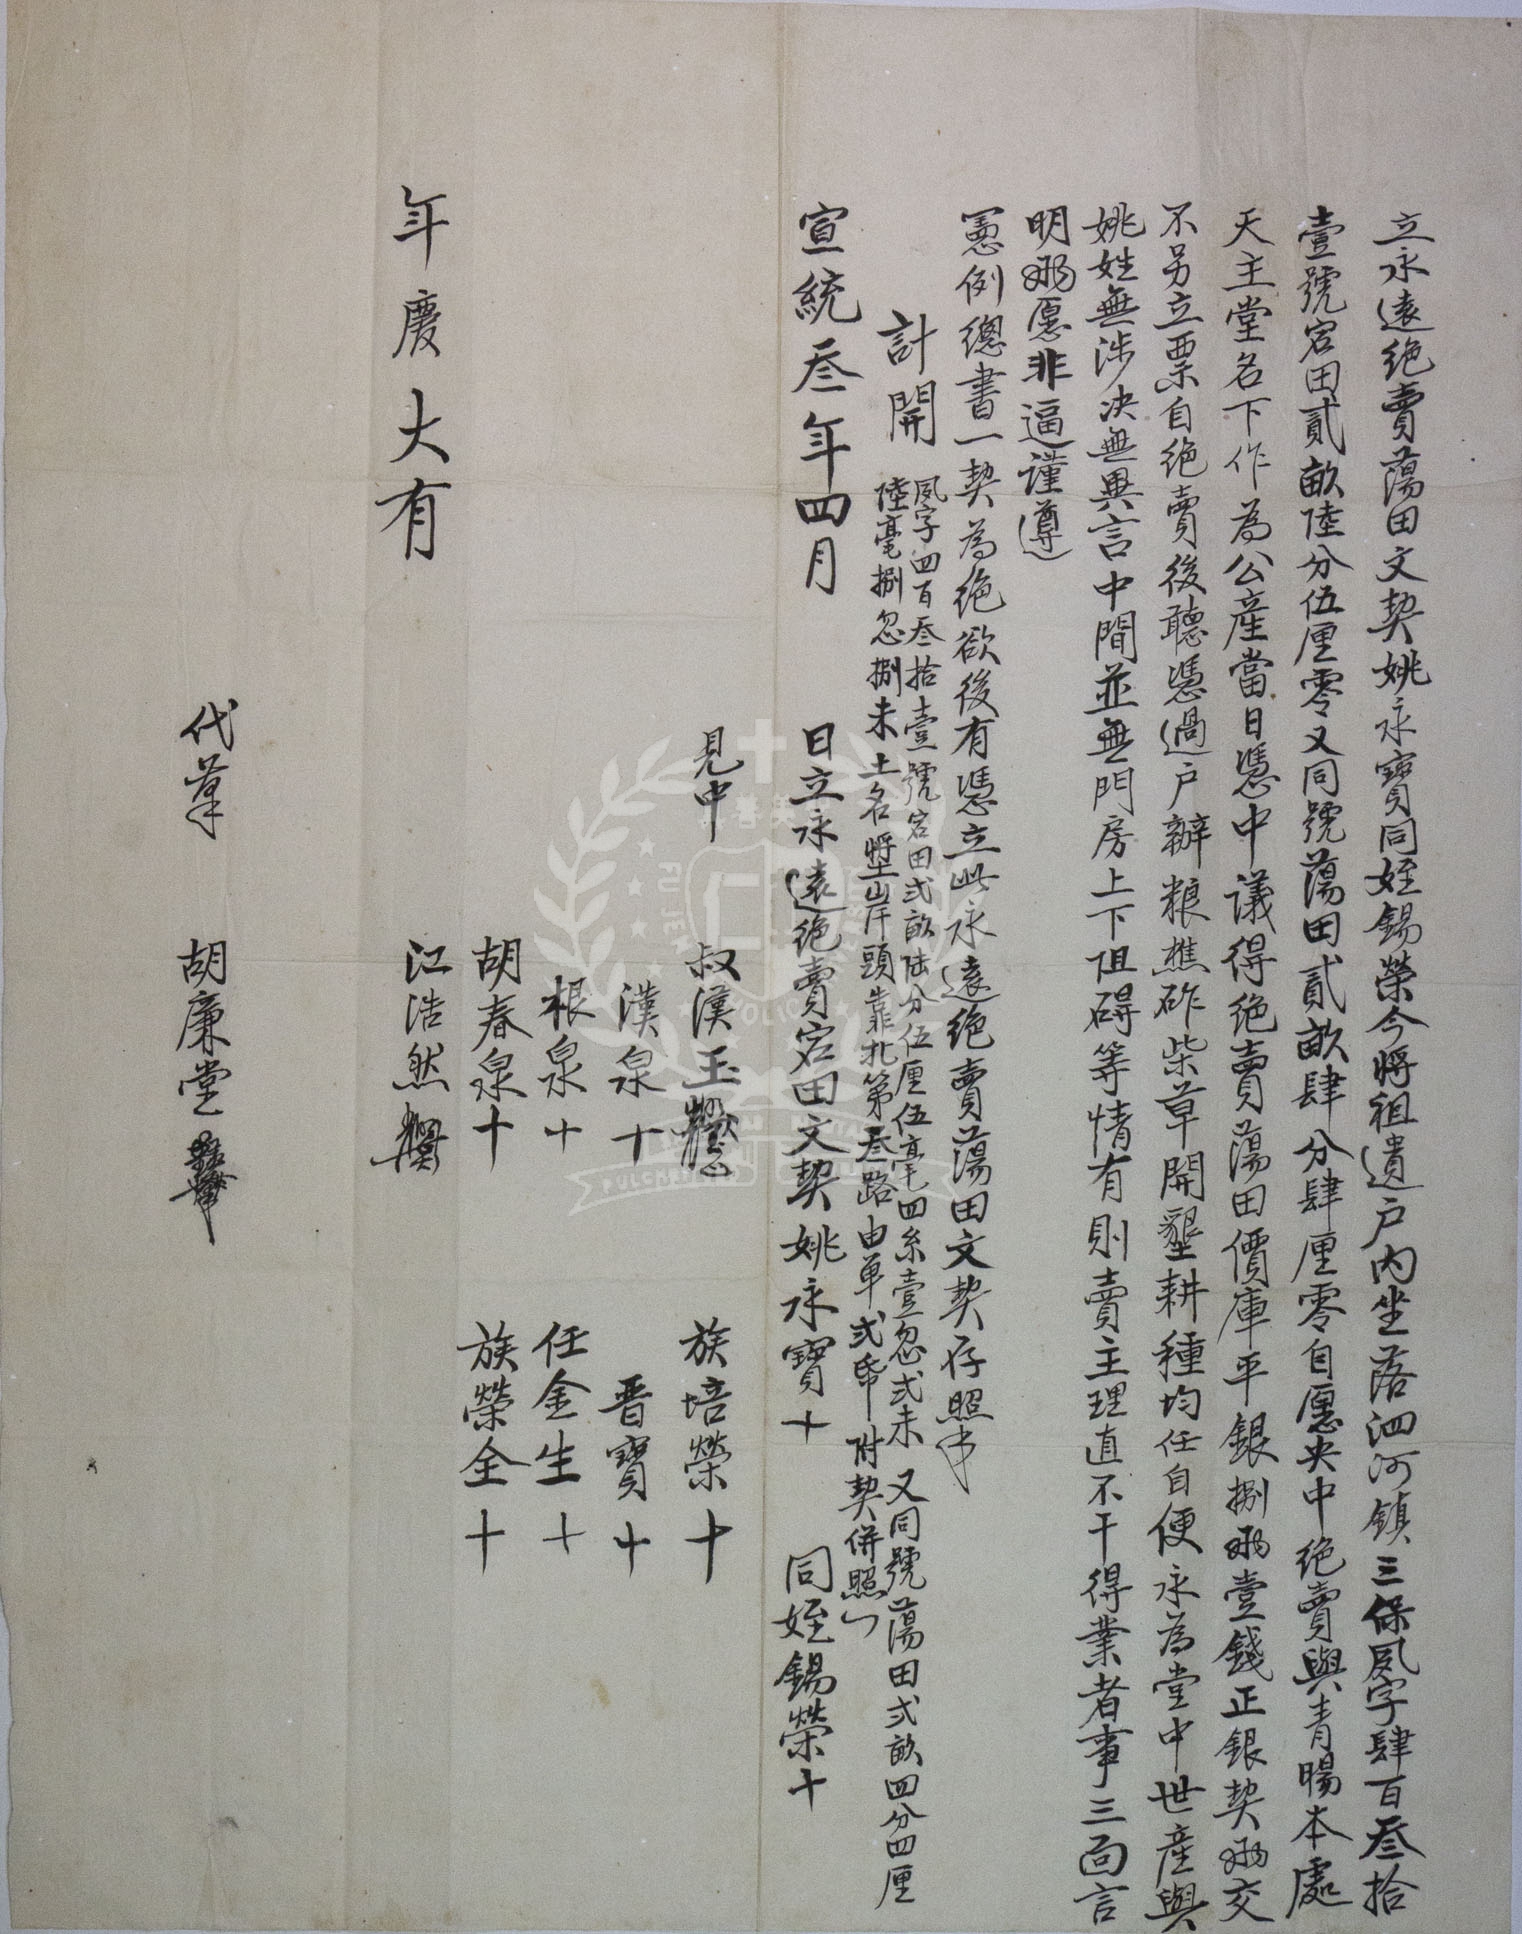 立永遠絶賣蕩田文契姚永寶同姪錫榮今將祖遺户内坐落泗河鎮三保夙字肆百叁拾
壹號宕田貳畝陸分伍厘零又同號蕩田貳畝肆分肆厘零自愿央中絶賣與青暘本處
天主堂名下作為公產當日憑中議得絶賣蕩田價庫平銀捌兩壹錢正銀契兩交
不另立票自絶賣後聽憑過户辦粮樵砟柴草開墾耕種均任自便永為堂中世產與
姚姓無涉决無異言中間並無門房上下阻碍等情有則賣主理直不干得業者事三面言
明兩愿非逼謹遵
憲例總書一契為絶欲後有憑立此永遠絶賣蕩田文契存照
計開
夙字四百叁拾壹號宕田弍畝陆分伍厘伍毫四糸壹忽弍未 又同號蕩田弍畝四分四厘
陸毫捌忽捌未土名墾岸頭靠北第叁路由单弍帋附契併照
宣統叁年四月 日立永遠絶賣宕田文契姚永寶十 同姪錫榮十
見中 叔漢玉 族培榮十
漢泉十 晋寶十
根泉十 任金生十
胡春泉十 族榮全十
年慶大有 江浩然
代筆 胡廉堂